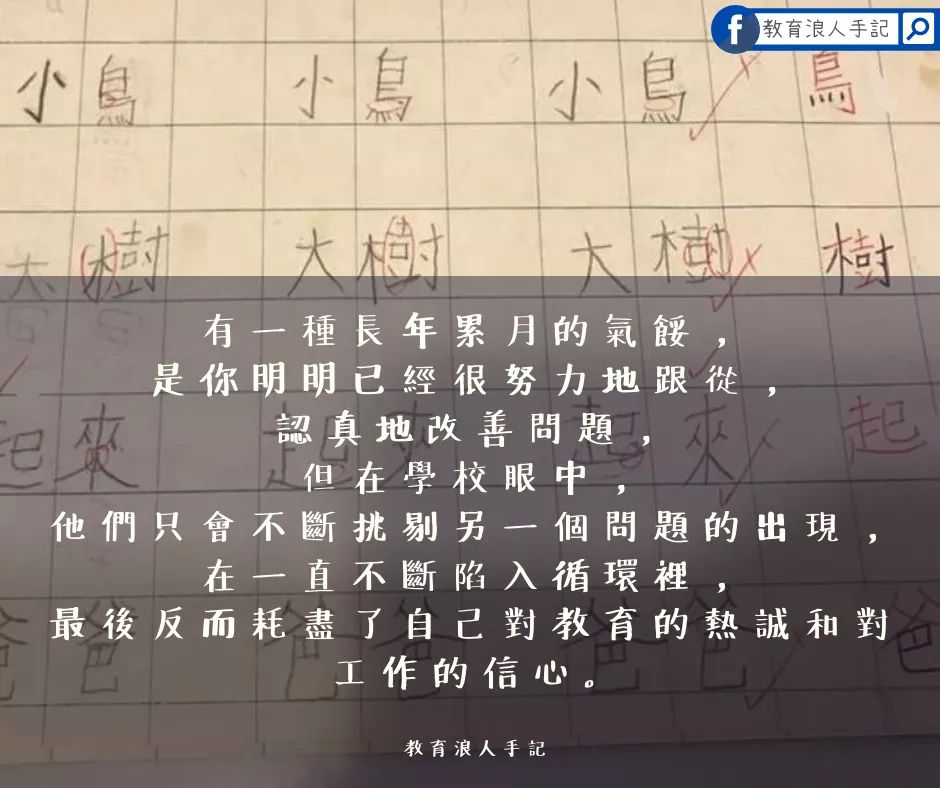 教育浪人手記
小鳥 小鳥 小鳥 鳥
大樹 大樹 大樹 樹
有一種長年累月的氣餒，
是你明明已經很努力地跟從，
認真地改善問題，
起來 起來 起來 起
但在學校眼中，
他們只會不斷挑剔另一個問題的出現，
在一直不斷陷入循環裡，
最後反而耗盡了自己對教育的熱誠和對
工作的信心。
爸爸 爸爸 爸爸 爸
教育浪人手記